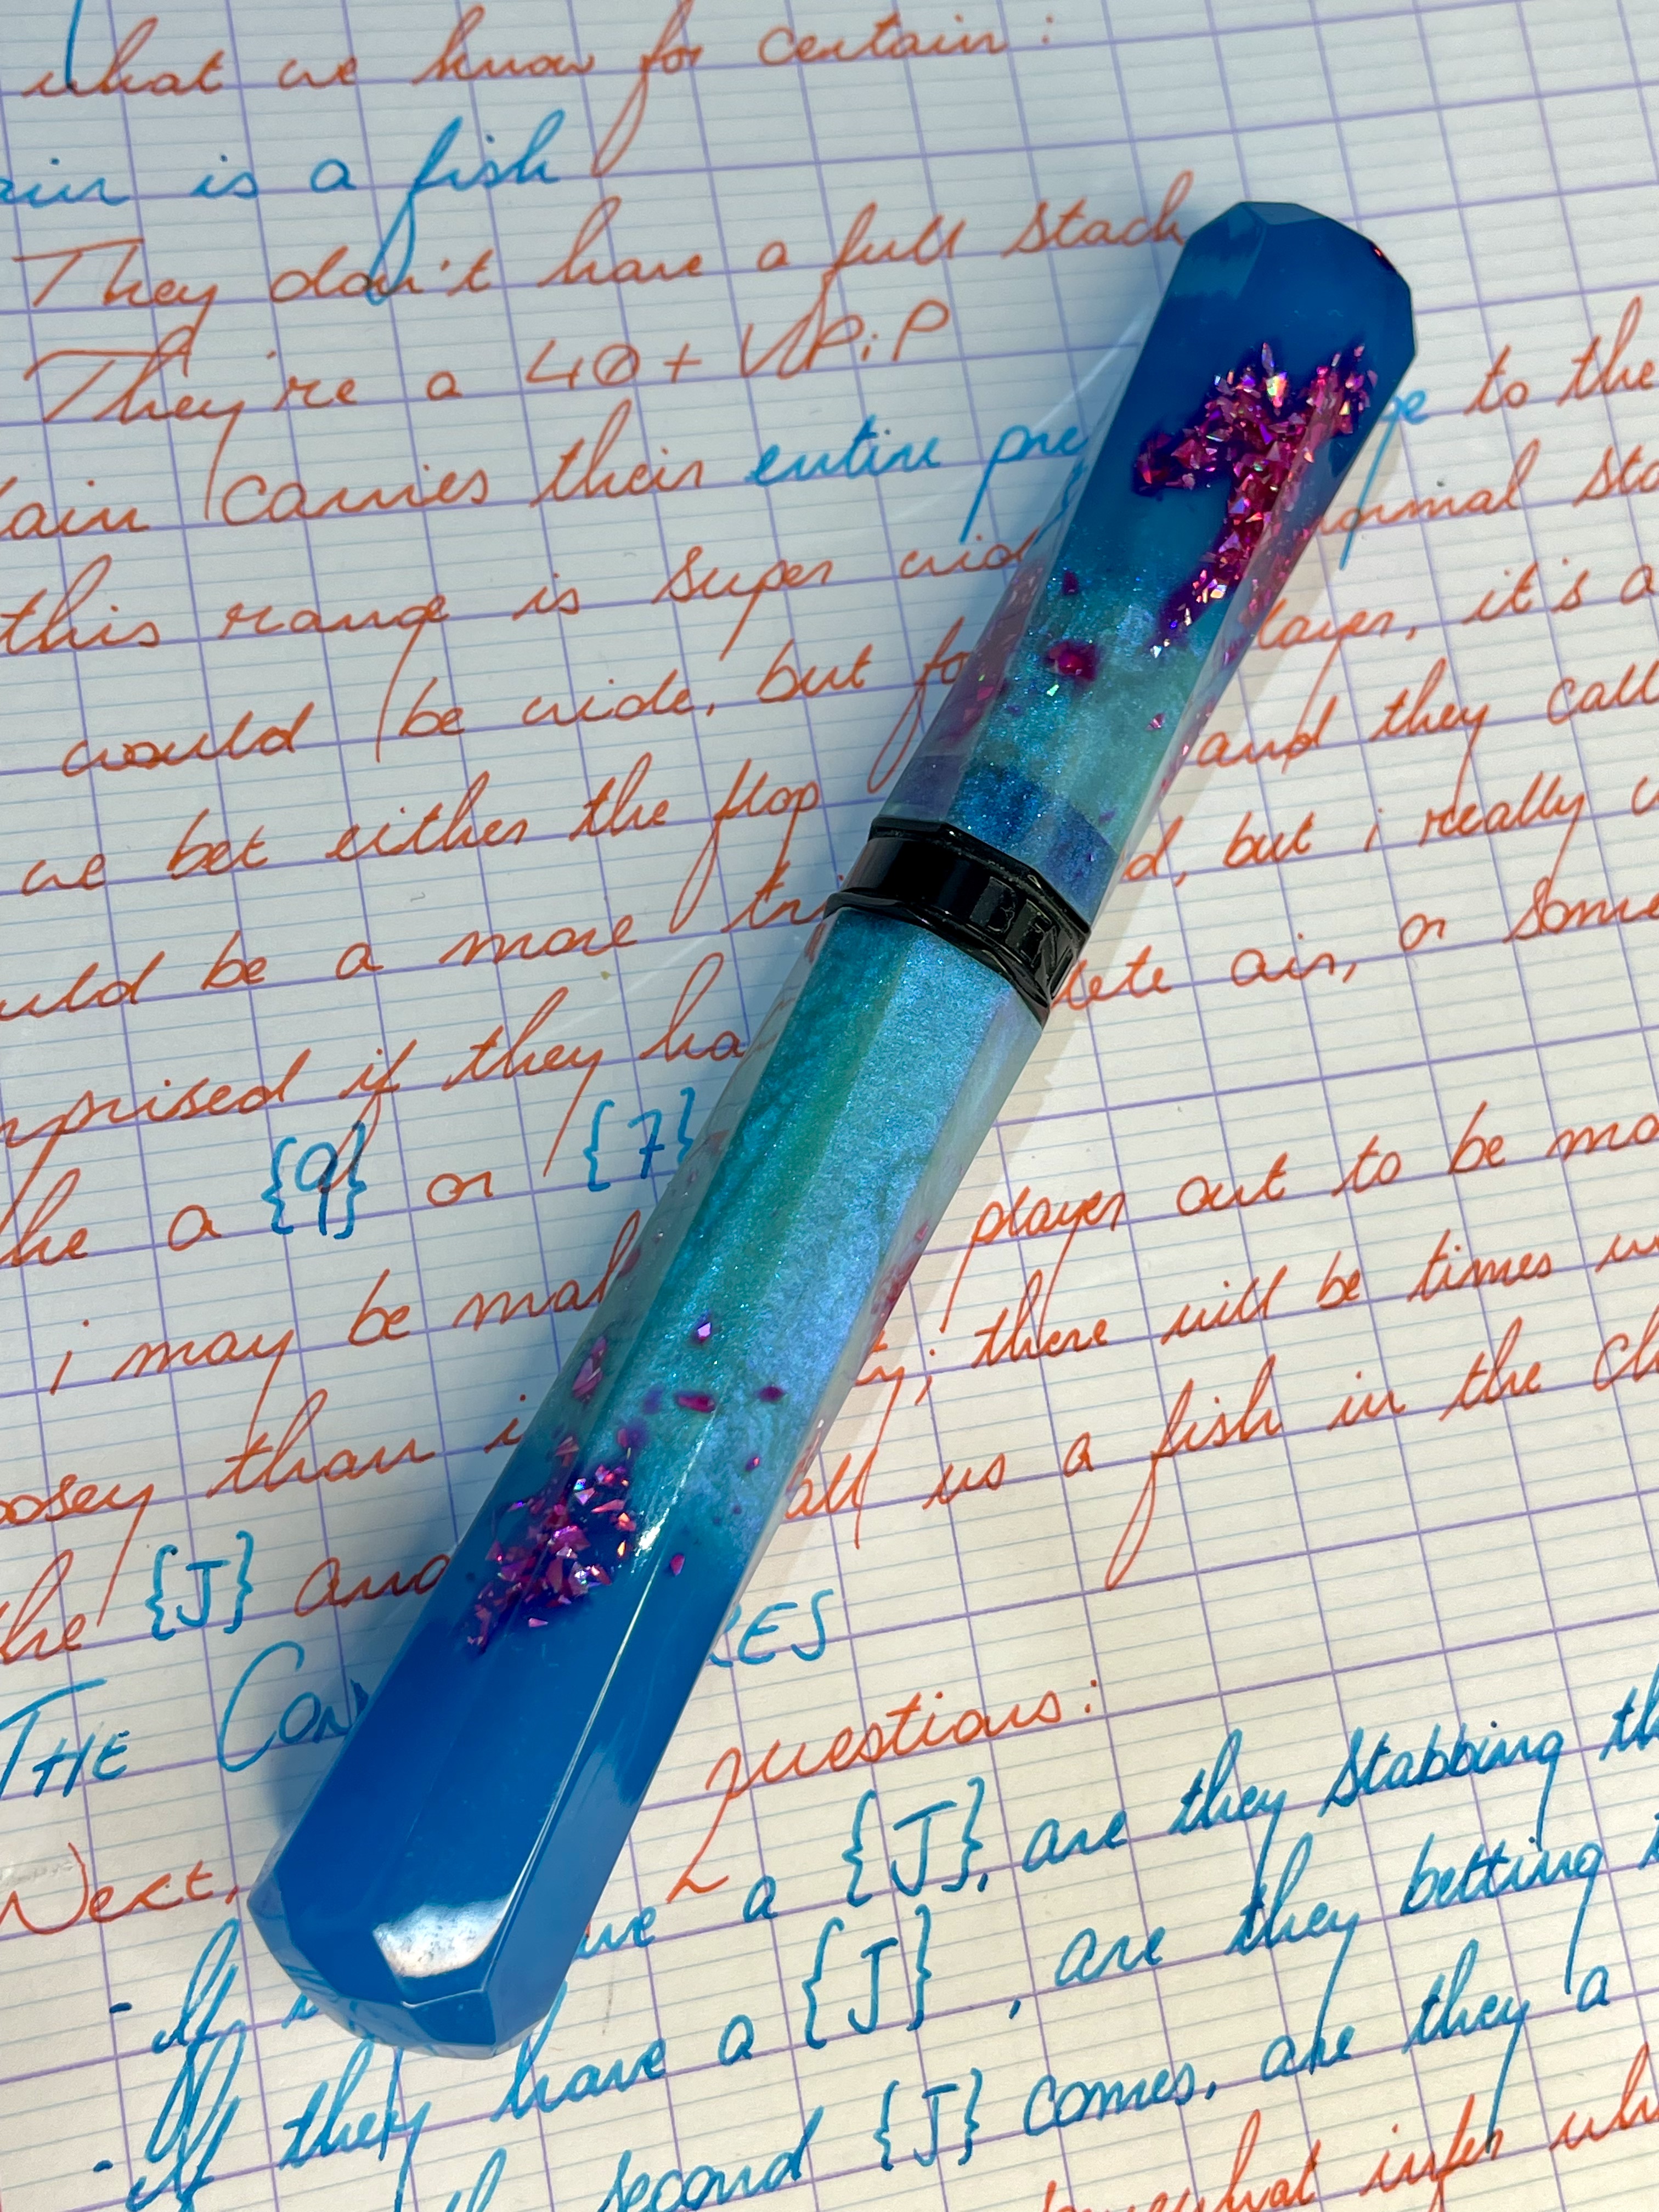 what we know for certain:
is a fish
They don't have a full stack
They're a 40+ VPiP
carries their entire pre to the
this range is super wid normal
would be wide, but fo layer, it's a
we bet either the flop and they call
uld be a more tri d, but i really
rprised if they ha lete air, or some
he a {9} or {7}
i may be mak player out to be mo
oosey than i ty; there will be times
the {J} and all us a fish in the
THE Con RES
Next, questions:
- If ve a {J}, are they stabbing th
- If they have a {J}, are they betting
second {J} comes, are they a
BEN